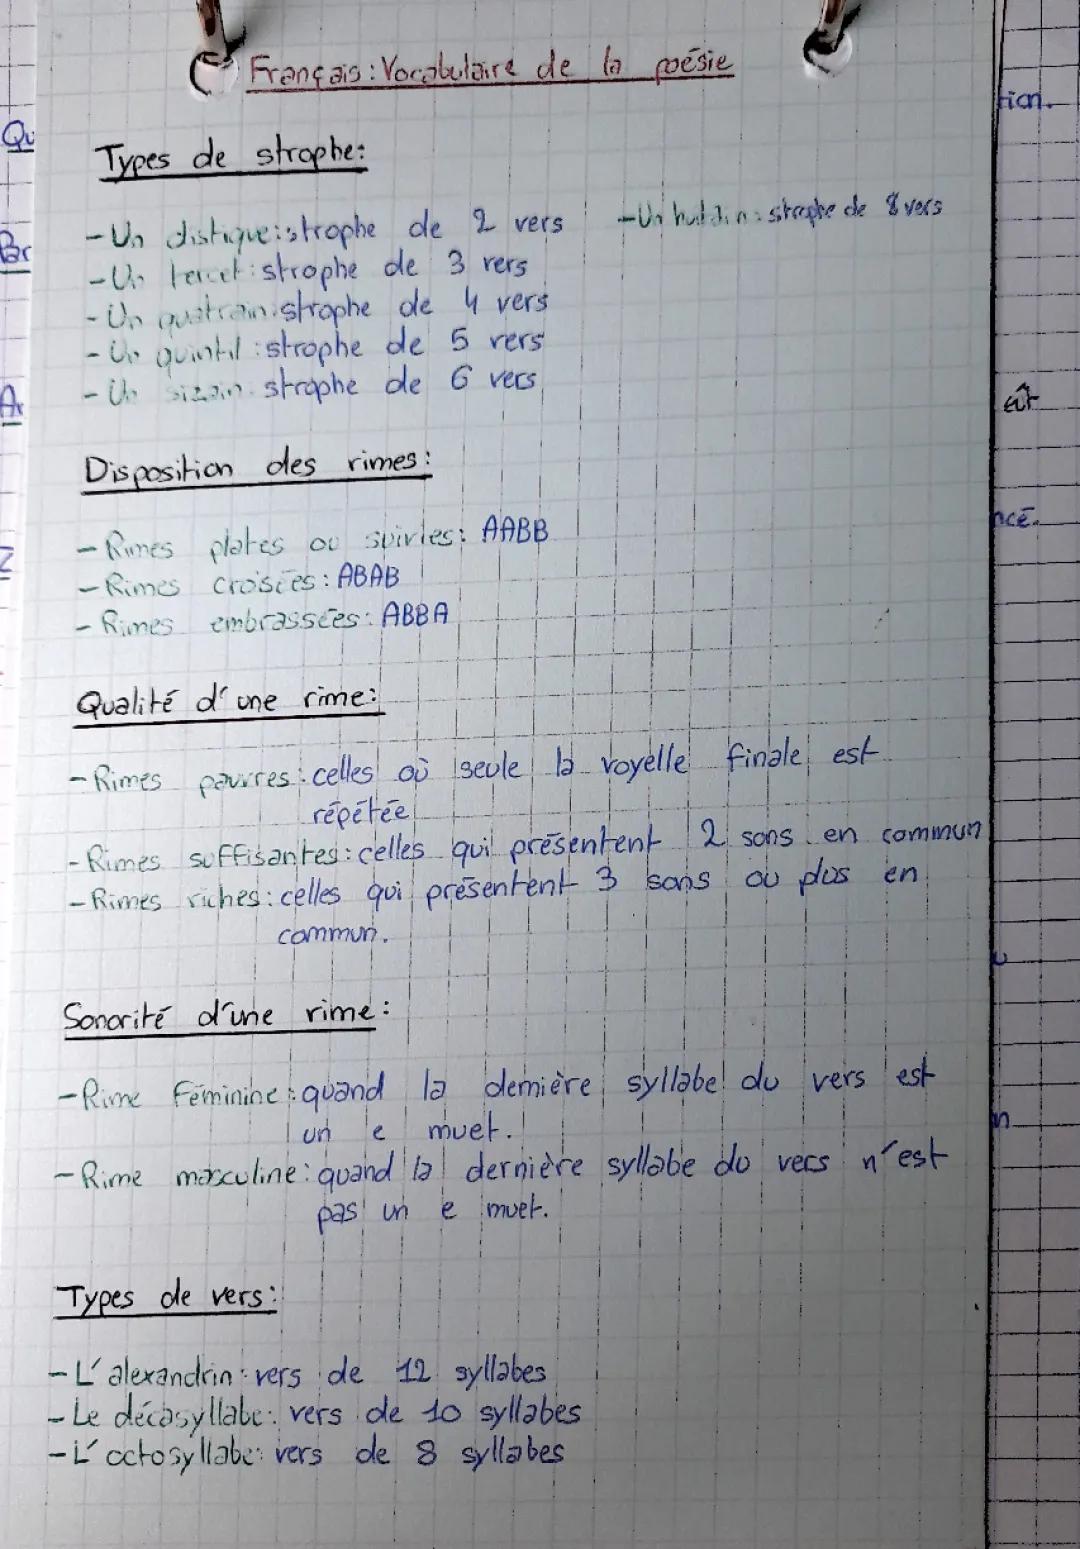 Français : Vocabulaire de la poésie
Types de strophe:
- Un distique: strophe de 2 vers
- Un huitain: strophe de 8 vers
- Un tercet: strophe de 3 vers
- Un quatrain: strophe de 4 vers
- Un quintil: strophe de 5 vers
- Un sizain: strophe de 6 vers
Disposition des rimes:
- Rimes plates ou suivies: AABB
- Rimes croisées: ABAB
- Rimes embrassées: ABBA
Qualité d'une rime:
- Rimes pauvres: celles où seule la voyelle finale est
répétée
- Rimes suffisantes: celles qui présentent 2 sons en commun
- Rimes riches: celles qui présentent 3 sons ou plus en
commun.
Sonorité d'une rime:
- Rime Féminine: quand la dernière syllabe du vers est
un e muet.
- Rime masculine: quand la dernière syllabe du vers n'est
pas un e muet.
Types de vers:
- L'alexandrin: vers de 12 syllabes
- Le décasyllabe: vers de 10 syllabes
- L'octosyllabe: vers de 8 syllabes